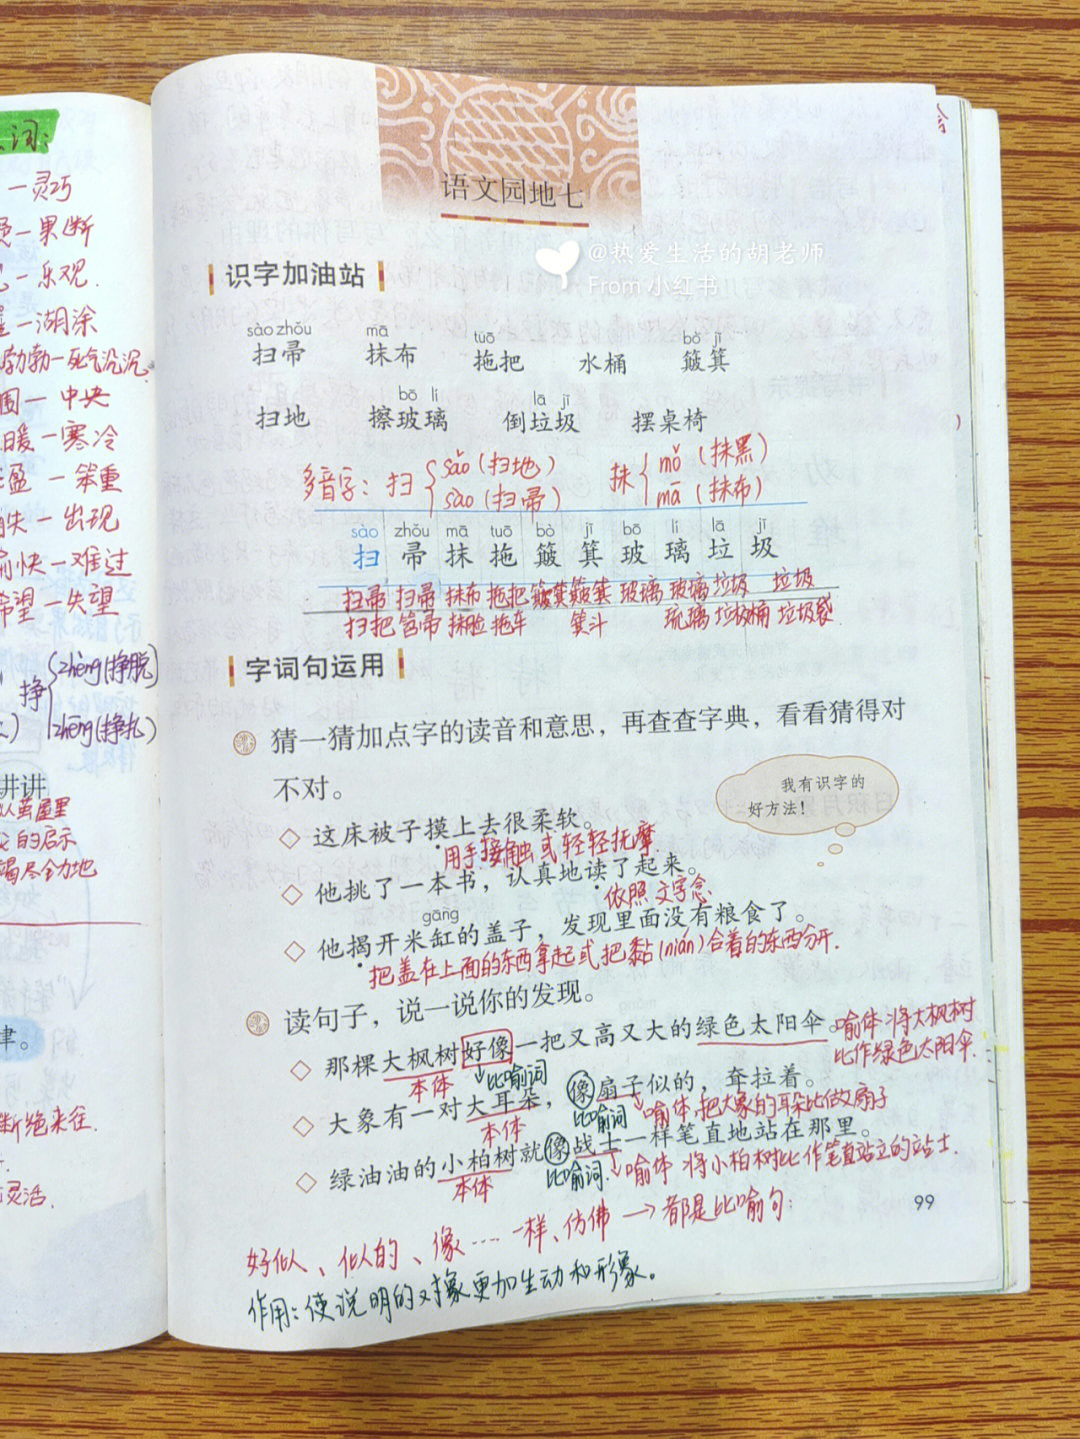 词:
一灵巧
一果断
一乐观.
一湖涂
勃勃一死气沉沉.
围一中央
暖一寒冷
盈一笨重
失一出现
愉快一难过
希望一失望
挣 zhèng(挣脱)
zhēng(挣扎)
讲讲
从茧屋里
的启示
竭尽全力地
津。
断绝来往.
灵活.
语文园地七
@热爱生活的胡老师
From 小红书
识字加油站
sào zhǒu mā tuō bò jī
扫帚 抹布 拖把 水桶 簸箕
bō li lā jī
扫地 擦玻璃 倒垃圾 摆桌椅
多音字: 扫 sǎo(扫地) 抹 mǒ(抹黑)
sào(扫帚) mā(抹布)
sào zhǒu mā tuō bò jī bō li lā jī
扫 帚 抹 拖 簸 箕 玻 璃 垃 圾
扫帚 扫帚 抹布 拖把 簸箕 簸箕 玻璃 玻璃 垃圾 垃圾
扫把 笤帚 抹脸 拖车 箕斗 琉璃 垃圾桶 垃圾袋
字词句运用
猜一猜加点字的读音和意思，再查查字典，看看猜得对
不对。
我有识字的
好方法！
◇ 这床被子摸上去很柔软。
用手接触或轻轻抚摩.
◇ 他挑了一本书，认真地读了起来。
依照文字念
gāng
◇ 他揭开米缸的盖子，发现里面没有粮食了。
把盖在上面的东西拿起或把黏(nián)合着的东西分开.
读句子，说一说你的发现。
◇ 那棵大枫树好像一把又高又大的绿色太阳伞。喻体 将大枫树
本体 比喻词 比作绿色太阳伞.
◇ 大象有一对大耳朵，像扇子似的，耷拉着。
本体 比喻词 喻体,把大象的耳朵比做扇子
◇ 绿油油的小柏树就像战士一样笔直地站在那里。
本体 比喻词. 喻体 将小柏树比作笔直站立的站士.
99
好似、似的、像……一样、仿佛→都是比喻句:
作用:使说明的对象更加生动和形象。